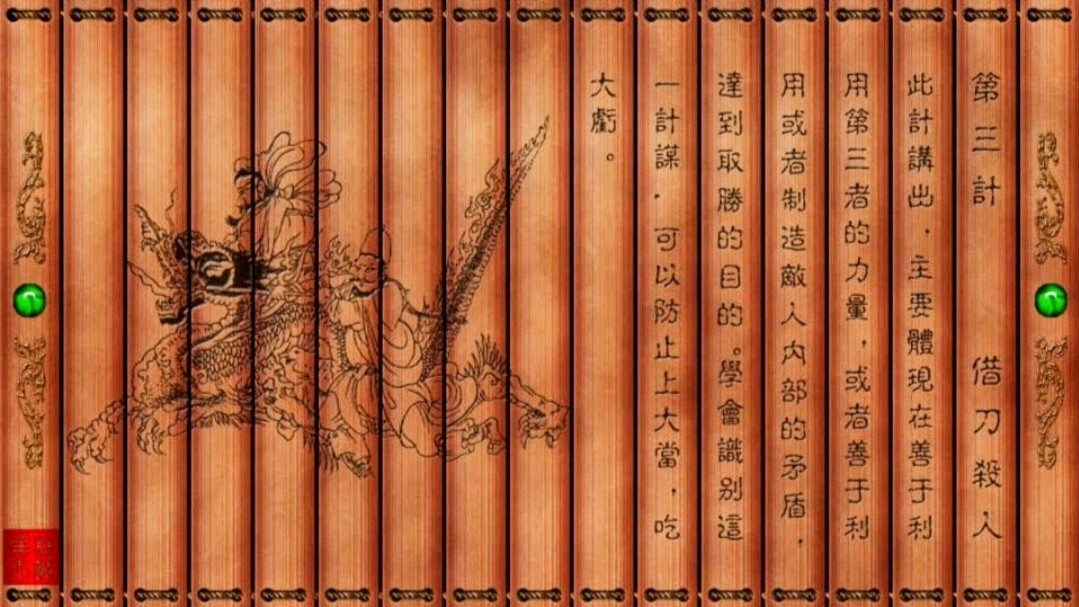 第三計　借刀殺人
此計講出，主要體現在善于利
用第三者的力量，或者善于利
用或者制造敵人内部的矛盾，
達到取勝的目的。學會識别這
一計謀，可以防止上大當，吃
大虧。